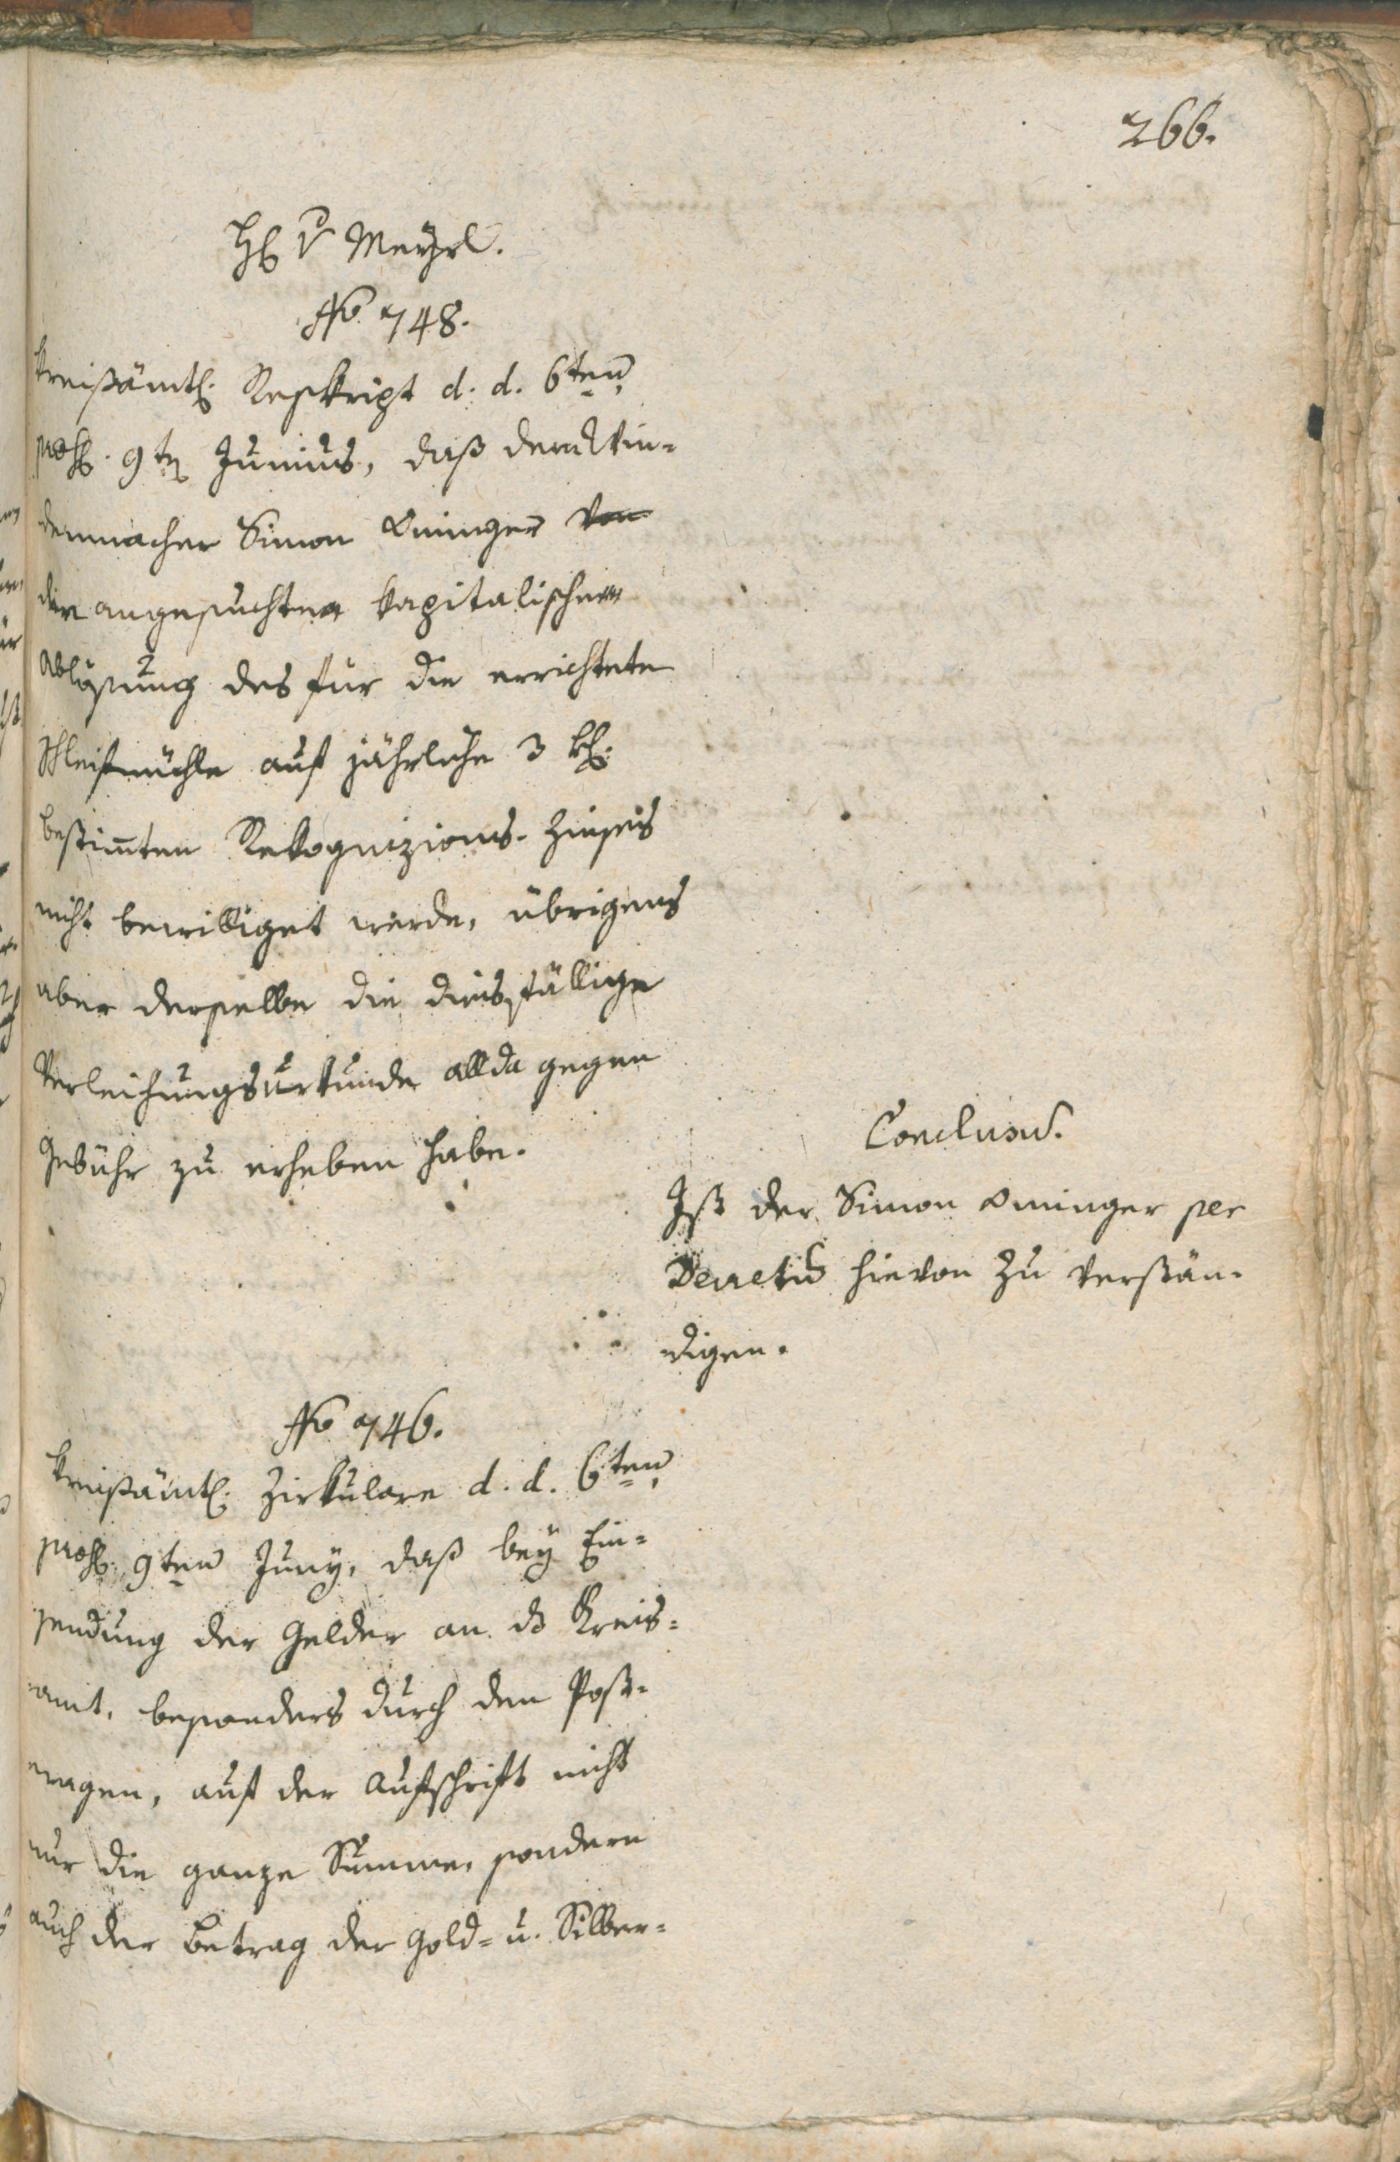 266.
H: v Meyrl.
No 748.
kreißämtl: Reskript d. d. 6ten
prod: 9ten Junius, daß dem Win-
denmacher Simon Oninger von
der angesuchten kapitalischen
Ablösung des für die errichtete
Schleifmühle auf jährliche 3 kr:
bestimten Rekognizions-Zinses
nicht bewilliget werde, übrigens
aber derselbe die diesfällige
Verleihungsurkunde allda gegen
Gebühr zu erheben habe.
Conclusum.
Ist der Simon Oninger per
Decretum hievon zu verstän-
digen.
No 746.
kreißämtl: Zirkulare d. d. 6ten
prod: 9ten Juny, daß bey Ein-
sendung der Gelder an ds Kreis-
amt, besonders durch den Post-
wagen, auf der Aufschrift nicht
nur die ganze Summe, sondern
auch der Betrag der Gold- u. Silber-